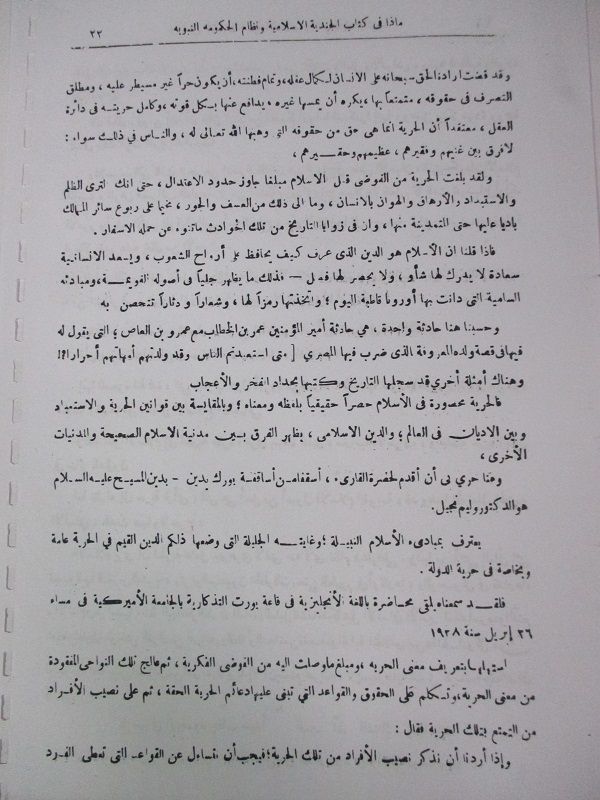 ماذا فى كتاب الجندية الاسلامية ونظام الحكومه النبويه ٢٢
وقد قضت ارادة الحق سبحانه على الانسان لكمال عقله، وتمام فطنته، أن يكون حراً غير مسيطر عليه ، ومطلق
التصرف فى حقوقه ، متمتعا بها، يكره أن يمسها غيره، يدافع عنها بكل قوته، وكامل حريته فى دائرة
العقل ، معتقداً أن الحرية انما هى حق من حقوقه التى وهبها الله تعالى له ، والناس فى ذلك سواء :
لافرق بين غنيهم وفقيرهم ، عظيمهم وحقيرهم ،
ولقد بلغت الحرية من الفوضى قبل الاسلام مبلغا جاوز حدود الاعتدال ، حتى انك لترى الظلم
والاستبداد والأرهاق والهوان بالانسان ، وما الى ذلك من العسف والجور ، مخيما على ربوع سائر الممالك
باديا عليها حتى المتمدينة منها، وان فى زوايا التاريخ من تلك الحوادث ماتنوء عن حمله الاسفار .
فاذا قلنا ان الأسلام هو الدين الذى عرف كيف يحافظ على أرواح الشعوب ، ويسعد الانسانية
سعادة لا يدرك لها شأو ، ولا يحصر لها فضل — فذلك ما يظهر جلياً فى أصوله القويمة، ومبادئه
السامية التى دانت بها أوروبا قاطبة اليوم ؛ واتخذتها رمزاً لها ، وشعاراً ودثاراً تتحصن به
وحسبنا هنا حادثة واحدة ، هى حادثة أمير المؤمنين عمر بن الخطاب مع عمرو بن العاص ؛ التى يقول له
فيها فى قصة ولده المعروفة الذى ضرب فيها المصرى [ متى استعبدتم الناس وقد ولدتهم أمهاتهم أحرارا؟!
وهناك أمثلة أخري قد سجلها التاريخ وكتبها بمداد الفخر والأعجاب
فالحرية محصورة فى الأسلام حصراً حقيقياً بلفظه ومعناه ؛ وبالمقايسة بين قوانين الحرية والاستعباد
وبين الاديان فى العالم ؛ والدين الاسلامى ، يظهر الفرق بين مدنية الاسلام الصحيحة والمدنيات
الأخرى ،
وهنا حري بى أن أقدم لحضرة القارىء ، أسقفا من أساقفة يورك بدين - بدين المسيح عليه السلام
هو الدكتور وليم تمبل.
يعترف بمبادىء الأسلام النبيلة ؛ وغايته الجليلة التى وضعها ذلكم الدين القيم فى الحرية عامة
وبخاصة فى حرية الدولة
فلقد سمعناه يلقى محاضرة باللغة الأنجليزية فى قاعة يورت التذكارية بالجامعة الأميركية فى مساء
٢٦ إبريل سنة ١٩٢٨
استهلها بتعريف معنى الحريه ، ومبلغ ماوصلت اليه من الفوضى الفكرية ، ثم عالج تلك النواحى المفقودة
من معنى الحرية، وتكلم على الحقوق والقواعد التى تبنى عليها دعائم الحرية الحقة ، ثم على نصيب الأفراد
من التمتع بتلك الحرية فقال :
وإذا أردنا أن نذكر نصيب الأفراد من تلك الحرية؛ فيجب أن نتساءل عن القواعد التى تعطى الفرد